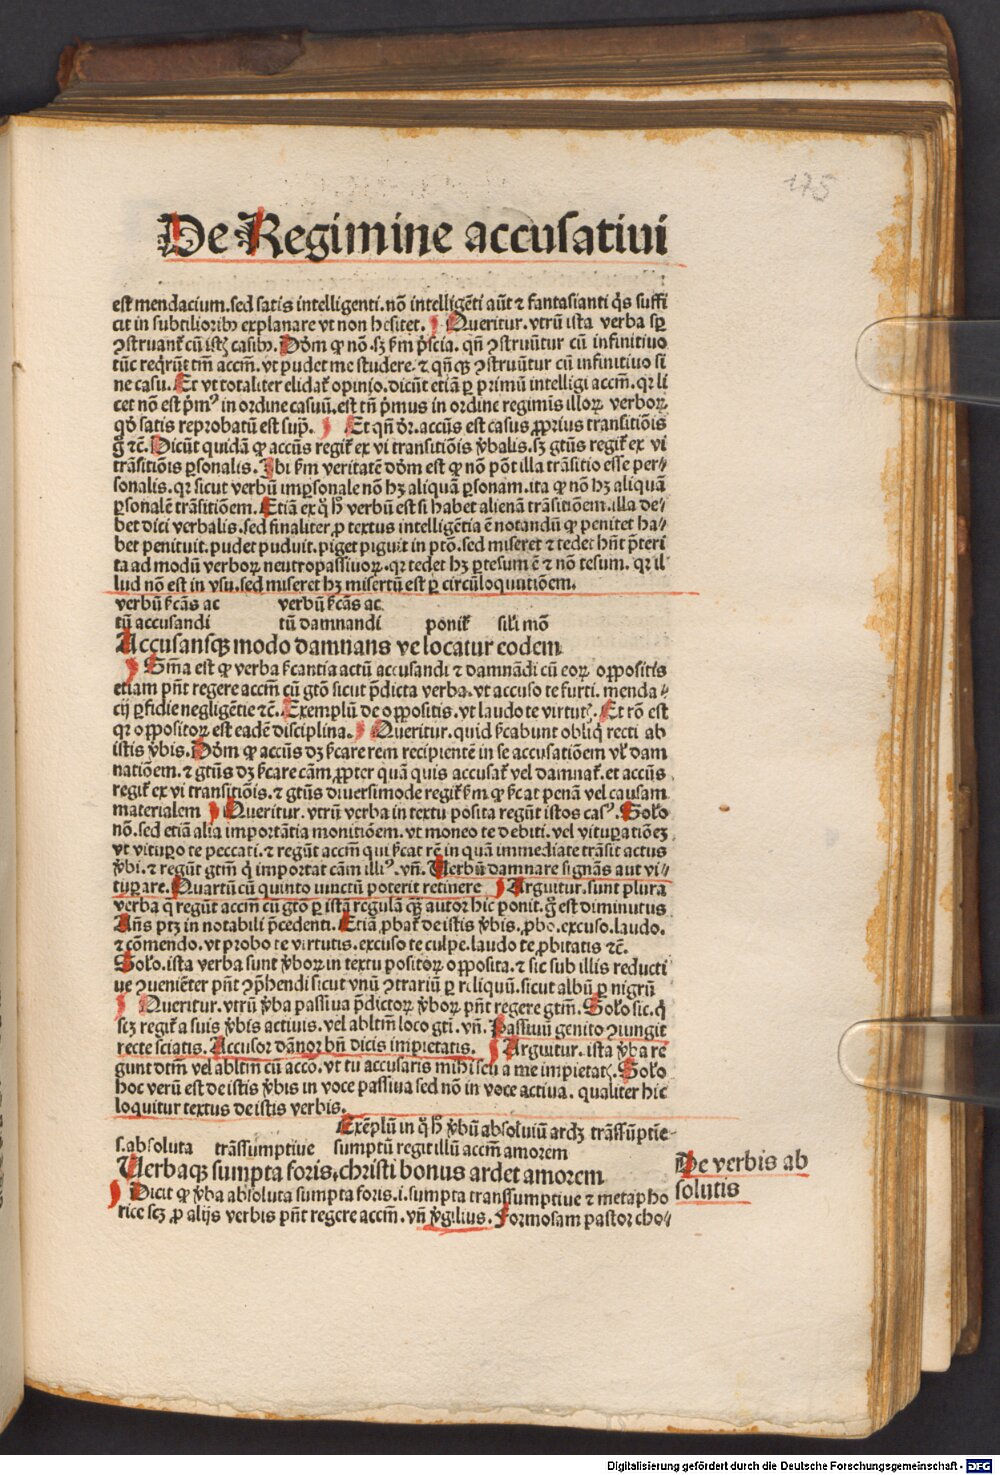 175
De Regimine accusatiui
est mendacium. sed satis intelligenti. nõ intelligẽti aũt ⁊ fantasianti q̃s suffi
cit in subtilioribꝰ explanare vt non hesitet. Queritur. vtrũ ista verba sꝑ
ꝯstruantᷣ cũ istꝭ casibꝰ. Dõm ꝙ nõ. sꝫ ẜm p̃scia. qñ ꝯstruũtur cũ infinitiuo
tũc reqͥrũt tm̃ accm̃. vt pudet me studere. ⁊ qñqꝫ ꝯstruũtur cũ infinitiuo si
ne casu. Et vt totaliter elidatᷣ opinio. dicũt etiã ꝑ primũ intelligi accm̃. qꝛ li
cet nõ est pͥmꝰ in ordine casuũ. est tñ pͥmus in ordine regimĩs illoꝝ verboꝝ
qḋ satis reprobatũ est supͣ. Et qñ dr̃. accũs est casus ꝓprius transitiõis
g̃ ⁊c̃. Dicũt quidã ꝙ accũs regitᷣ ex vi transitiõis v̾balis. sꝫ gtũs regitᷣ ex vi
trãsitiõis ꝑsonalis. Ibi ẜm veritatẽ dõm est ꝙ nõ põt illa trãsitio esse per⸗
sonalis. qꝛ sicut verbũ imꝑsonale nõ hꝫ aliquã ꝑsonam. ita ꝙ nõ hꝫ aliquã
ꝑsonalẽ trãsitiõem. Etiã ex q̊ h̾ verbũ est si habet alienã trãsitiõem. illa de⸗
bet dici verbalis. sed finaliter ꝓ textus intelligẽtia ẽ notandũ ꝙ penitet ha⸗
bet penituit. pudet puduit. piget piguit in p̃tõ. sed miseret ⁊ tedet hñt p̃teri
ta ad modũ verboꝝ neutropassiuoꝝ. qꝛ tedet hꝫ ꝑtesum ẽ ⁊ nõ tesum. qꝛ il⸗
lud nõ est in vsu. sed miseret hꝫ misertũ est ꝑ circũloquutiõem.
verbũ ẜcãs ac verbũ ẜcãs ac
tũ accusandi tũ damnandi ponitᷣ sil̾i mõ
Accusansqꝫ modo damnans ve locatur eodem
Sm̃a est ꝙ verba ẜcantia actũ accusandi ⁊ damnãdi cũ eoꝝ oꝓpositis
etiam pñt regere accm̃ cũ gtõ sicut p̃dicta verba. vt accuso te furti. menda⸗
cij ꝑfidie negligẽtie ⁊c̃. Exemplũ de oꝓpositis. vt laudo te virtutꝭ. Et rõ est
qꝛ oꝓpositoꝝ est eadẽ disciplina. Queritur. quid ẜcabunt obliqͥ recti ab
istis v̾bis. Dõm ꝙ accũs dꝫ ẜcare rem recipientẽ in se accusatiõem vl̾ dam
natiõem. ⁊ gtũs dꝫ ẜcare cãm ꝓpter quã quis accusatᷣ vel damnatᷣ. et accũs
regitᷣ ex vi transitiõis. ⁊ gtũs diuersimode regitᷣ ẜm ꝙ ẜcat penã vel causam
materialem Queritur. vtrũ verba in textu posita regũt istos casꝰ. Sol̾o
nõ. sed etiã alia importãtia monitiõem. vt moneo te debiti. vel vituꝑatiõeꝫ
vt vituꝑo te peccati. ⁊ regũt accm̃ qui ẜcat rẽ in quã immediate trãsit actus
v̾bi. ⁊ regũt gtm̃ qͥ importat cãm illiꝰ. vñ. Uerbũ damnare signãs aut vi⸗
tuꝑare. Quartũ cũ quinto iunctũ poterit retinere Arguitur. sunt plura
verba q̃ regũt accm̃ cũ gtõ ꝑ istã regulã qꝫ autor hic ponit. g̃ est diminutus
Añs ptꝫ in notabili p̃cedenti. Etiã ꝓbatᷣ de istis v̾bis. ꝓbo. excuso. laudo.
⁊ cõmendo. vt probo te virtutis. excuso te culpe. laudo te ꝓbitatis ⁊c̃.
Sol̾o. ista verba sunt v̾boꝝ in textu positoꝝ oꝓposita. ⁊ sic sub illis reducti
ue ꝯueniẽter pñt ꝯp̃hendi sicut vnũ ꝯtrariũ ꝑ reliquũ. sicut albũ ꝑ nigrũ
Queritur. vtrũ v̾ba passiua p̃dictoꝝ v̾boꝝ pñt regere gtm̃. Sol̾o sic. q̃
scꝫ regitᷣ a suis v̾bis actiuis. vel abltm̃ loco gti. vñ. Passiuũ genito ꝯiungit
recte sciatis. Accusor dãnor bñ dicis impietatis. Arguitur. ista v̾ba re
gunt dtm̃ vel abltm̃ cũ accõ. vt tu accusaris mihi seu a me impietatꝭ. Sol̾o
hoc verũ est de istis v̾bis in voce passiua sed nõ in voce actiua. qualiter hic
loquitur textus de istis verbis.
Exẽplũ in q̊ h̾ v̾bũ absolutũ ardꝫ trãssũptie
s. absoluta trãssumptiue sumptũ regit illũ accm̃ amorem
Uerbaqꝫ sumpta foris, christi bonus ardet amorem
De verbis ab
solutis
Dicit ꝙ v̾ba absoluta sumpta foris. i. sumpta transsumptiue ⁊ metapho
rice scꝫ ꝓ alijs verbis pñt regere accm̃. vñ v̾gilius. Formosam pastor cho⸗
Digitalisierung gefördert durch die Deutsche Forschungsgemeinschaft - DFG